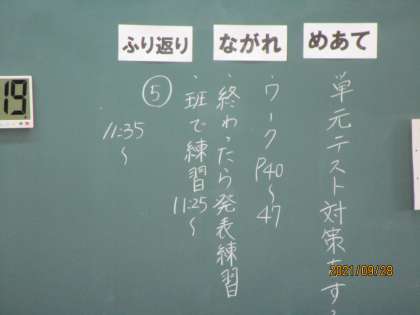 めあて
単元テスト対策をす
ながれ
・ワーク P40～47
・終わったら発表練習
・班で練習 11:25～
ふり返り
⑤
11:35～
19
2021/09/28